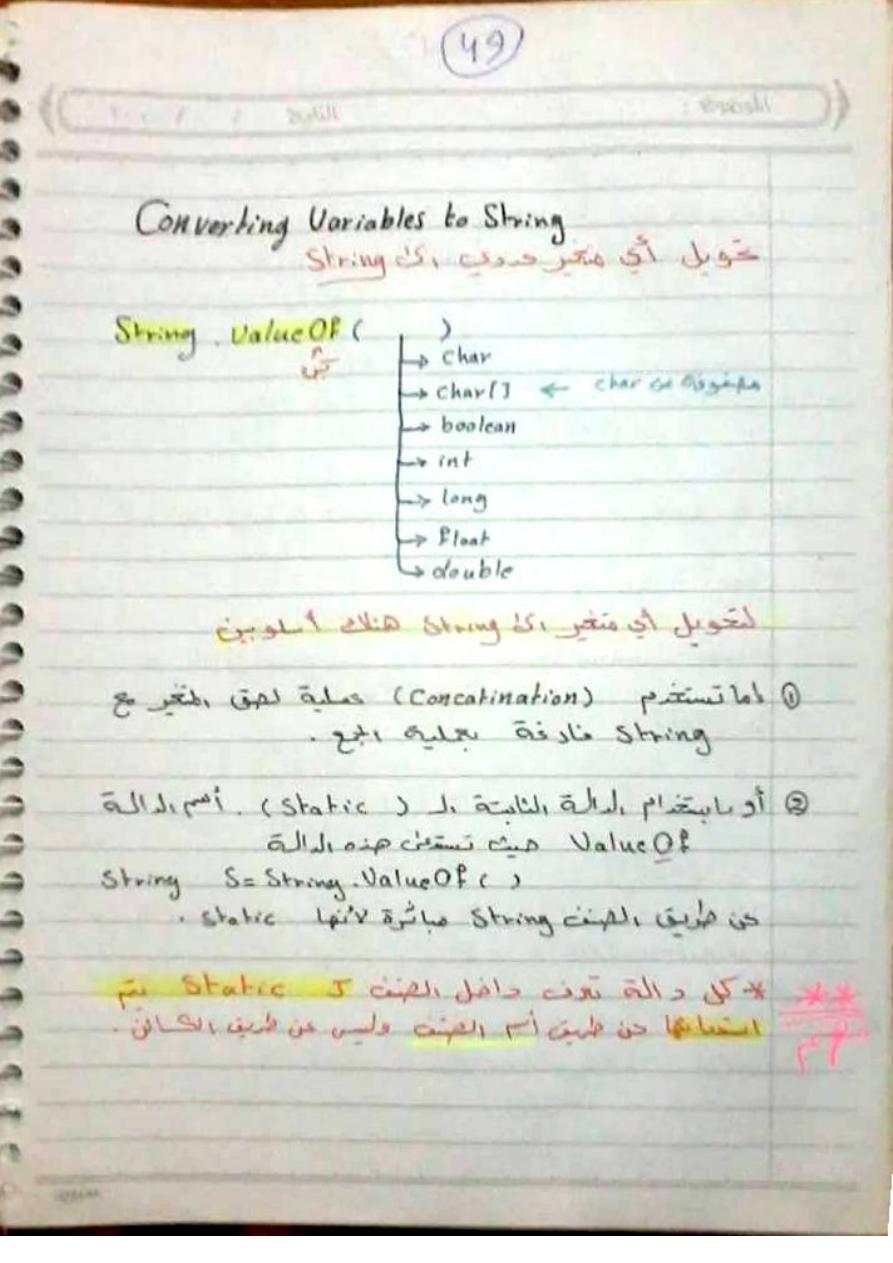 49
الموضوع : التاريخ / / ٢٠٠
Converting Variables to String
تحويل أي متغير عددي إلى String
String . ValueOf ( )
كبتل
char
char[] ← مصفوفة من char
boolean
int
long
float
double
لتحويل أي متغير إلى String هناك أسلوبين
① إما تستخدم (Concatination) عملية لصق المتغير مع
String فارغة بعملية الجمع .
② أو باستخدام الدالة الثابتة الـ (Static) . أسم الدالة
ValueOf حيث تستدعى هذه الدالة
String S= String.ValueOf ( )
عن طريق الصنف String مباشرة لأنها static .
* كل دالة تعرف داخل الصنف كـ Static يتم
استدعائها عن طريق أسم الصنف وليس عن طريق الكائن .
** مهم